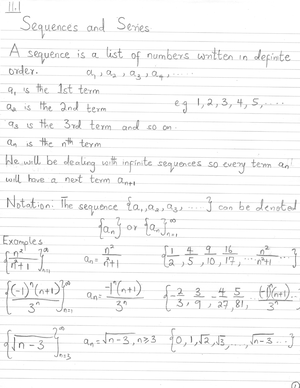 11.1
Sequences and Series
A sequence is a list of numbers written in definite
order. a₁, a₂, a₃, a₄, .....
a₁ is the 1st term
a₂ is the 2nd term e.g 1, 2, 3, 4, 5, .....
a₃ is the 3rd term and so on
aₙ is the nth term
We will be dealing with infinite sequences so every term aₙ
will have a next term aₙ₊₁
Notation: The sequence {a₁, a₂, a₃, ....} can be denoted
{aₙ} or {aₙ}ₙ₌₁^∞
Examples
{n²/(n²+1)}ₙ₌₁^∞ aₙ = n²/(n²+1) {1/2, 4/5, 9/10, 16/17, ..... n²/(n²+1) ...}
{(-1)ⁿ(n+1)/3ⁿ}ₙ₌₁^∞ aₙ = -1ⁿ(n+1)/3ⁿ {-2/3, 3/9, -4/27, 5/81, (-1)ⁿ(n+1)/3ⁿ ..
{√(n-3)}ₙ₌₃^∞ aₙ = √(n-3), n≥3 {0, 1, √2, √3, ...., √(n-3) ...}